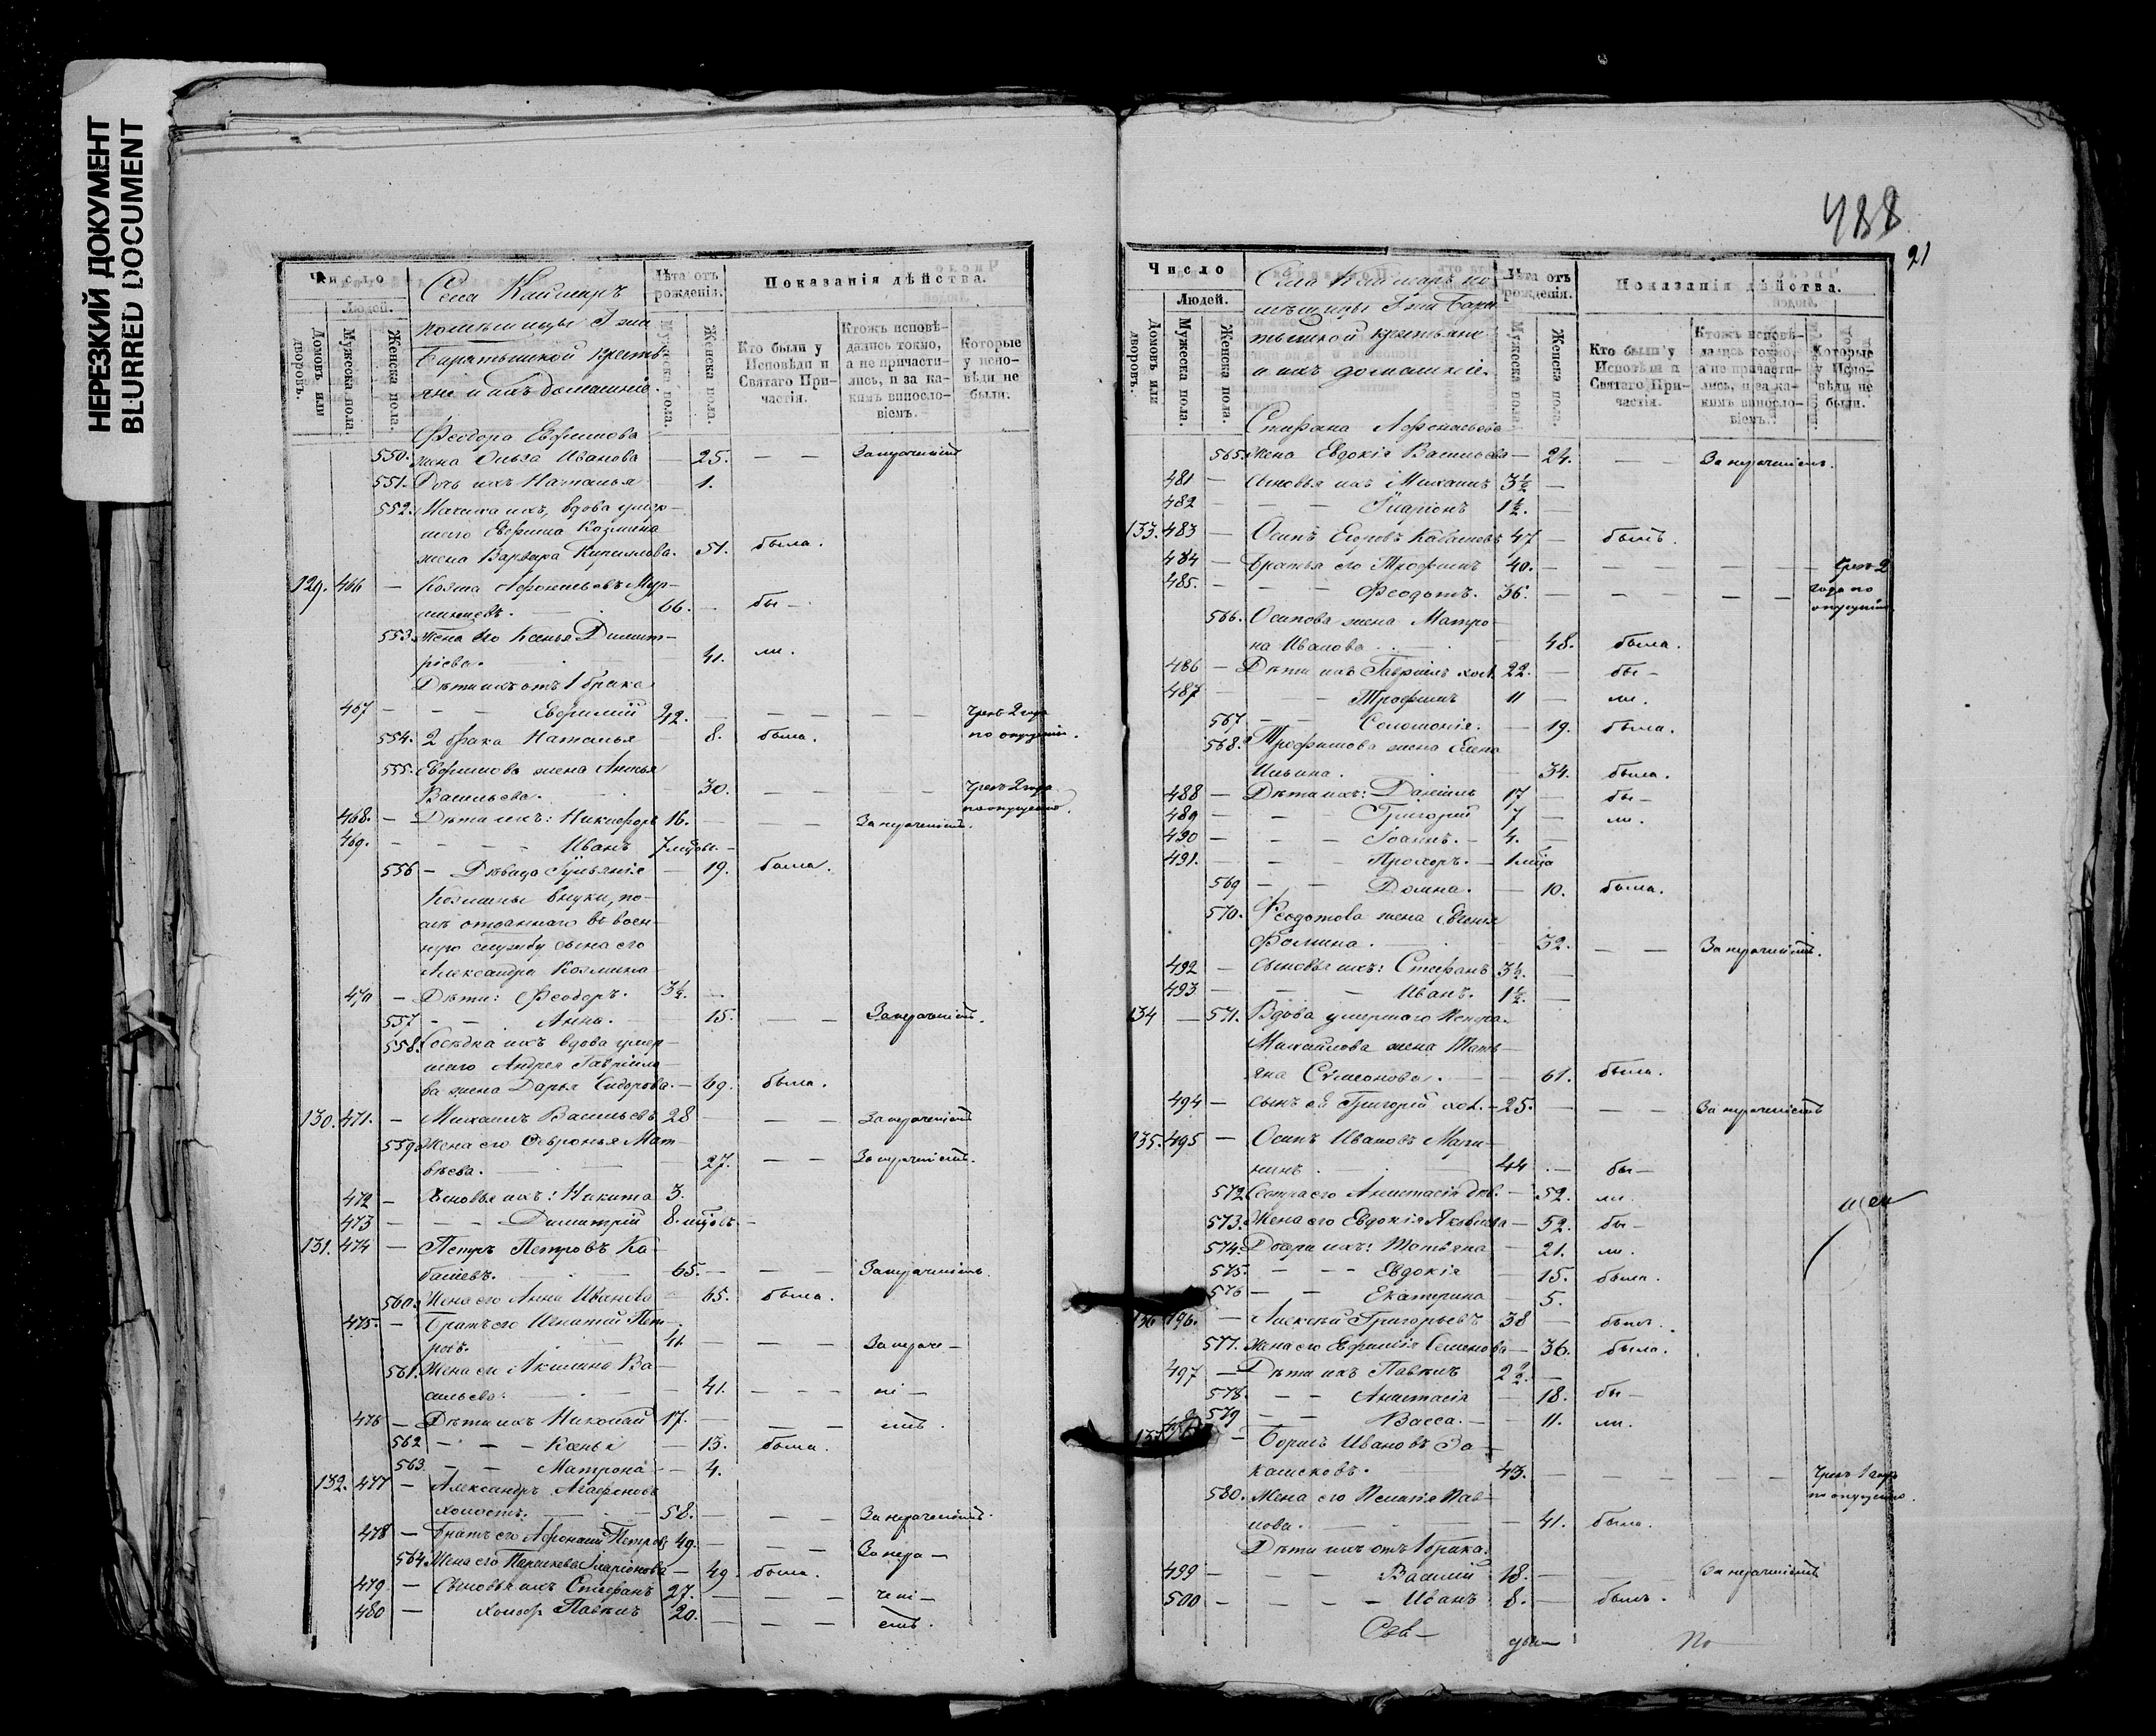 НЕРЕЗКИЙ ДОКУМЕНТ
BLURRED DOCUMENT
Число
Людей.
Домовъ или дворовъ.
Мужеска пола.
Женска пола.
Села Каймаръ
помѣщицы Гжи
Баратынской кресть
яне и ихъ домашніе.
Лѣта отъ рожденія.
Мужеска пола.
Женска пола.
Показанія дѣйства.
Кто были у Исповѣди и Святаго Причастія.
Ктожъ исповѣдались токмо, а не причастились, и за какимъ винословіемъ.
Которые у исповѣди не были.
Феодора Евфимова
550. жена Ольга Иванова — 25. — — За нераченіемъ
551. Дочь ихъ Наталья 1.
552. Мачиха ихъ, вдова умер-
шего Евфима Козмина
жена Варвара Кириллова. 51. была.
129. 466 — Козма Афонасьевъ Мур-
66. — бы —
553. Жена его Ксенья Димит-
ріева. 41. ли.
Дѣти ихъ отъ 1 брака
467 — — — Евфимій 42. — — — — — Чрезъ 2 года
554. 2 брака Наталья — 8. была. по опущенію.
555. Евфимова жена
Васильева. 30. — — — — Чрезъ 2 года
по опущенію.
468. — Дѣти ихъ: Никифоръ 16. — — — За нераченіемъ.
469. — — — — Иванъ 7 мѣсяц. —
556 — Дѣвица Іульянія — 19. была.
Козмины внуки, по-
слѣ отданнаго въ воен-
ную службу сына его
Александра Козмина
470 — Дѣти: Феодоръ. 3½. —
557 — — Анна. — 15. — — За нераченіемъ.
558. Сосѣдка ихъ вдова умер-
шего Андрея Гавріило-
ва жена Дарья Сидорова. — 69. была.
130. 471. — Михаилъ Васильевъ 28 — — — За нераченіемъ
559. Жена его Февронья Мат-
вѣева. — 27. — — За нераченіемъ.
472 — Сыновья ихъ: Никита 3.
473 — — — Димитрій 8. мѣсяцовъ —
131. 474 — Петръ Петровъ Ка-
65. — — — За нераченіемъ.
560. Жена его Анна Иванова — 65. была.
475. — Братъ его Игнатій Пет-
ровъ. — 41 — — — За нераче —
561. Жена его Акилина Ва-
сильева: — 41. — — — ні —
476 — Дѣти ихъ Николай 17. — — — емъ.
562 — — — Ксенья — 13. была.
563. — — Матрона — 4.
132. 477 — Александръ Агафоновъ
холостъ. — 58. — — — За нераченіемъ.
478 — Братъ его Афонасій Петровъ 49. — — — За нера —
564. Жена его Параскева Иларіонова — 49. была.
479. — Сыновья ихъ Стефанъ 27. — — — чені —
480 — холост Павелъ 20. — — — емъ.
488
21
Число
Людей.
Домовъ или дворовъ.
Мужеска пола.
Женска пола.
Села Каймаръ по
мѣщицы Гжи Бара
тынской крестьяне
и ихъ домашніе.
Лѣта отъ рожденія.
Мужеска пола.
Женска пола.
Показанія дѣйства.
Кто были у Исповѣди и Святаго Причастія.
Ктожъ исповѣдались токмо, а не причастились, и за какимъ винословіемъ.
Которые у Исповѣди не были.
Стефана Афонасьева
565. жена Евдокія Васильева — 24. — — За нераченіемъ.
481 — Сыновья ихъ Михаилъ 3½ —
482 — — — Иларіонъ 1½. —
133. 483 — Осипъ Егоровъ 47 — былъ.
484 — Братья его Трофимъ 40. — — — — — Чрезъ 2
485. — — Феодотъ. 36. — — — — года по
опущенію
566. Осипова жена Матро-
на Иванова — 48. была.
486 — Дѣти ихъ Гавріилъ хол. 22. — бы —
487 — — Трофимъ 11 — ли.
567. — — Соломонія. — 19. была.
568. Трофимова жена Елена
Ильина. — 34. была.
488 — Дѣти ихъ: Даніилъ 17 — бы —
489 — — Григорій 7 — ли.
490 — — Іоаннъ. — 4. —
491. — — Прохоръ. — 1 мѣсяца
569 — — Домна. — 10. была.
570. Феодотова жена Евгенія
Фомина. — 32. — — За нераченіемъ.
492 — Сыновья ихъ: Стефанъ 3½. —
493 — — Иванъ. 1½. —
134 — 571. Вдова умершаго Петра
Михайлова жена Тать-
яна Сѵмеонова. — 61. была.
494 — Сынъ её Григорій хол. — 25. — — — За нераченіемъ
135. 495 — Осипъ Ивановъ
44 — бы —
572 Сестра его Анастасія дѣв. — 52. ли.
573. Жена его Евдокія Яковлева — 52. бы —
574. Дочери ихъ: Татьяна — 21. ли.
575. — — — Евдокія — 15. была.
576 — — Екатерина — 5.
136 496. — Алексѣй Григорьевъ 38 — былъ.
577. Жена его Евфимія Семенова — 36. была.
497 — Дѣти ихъ Павелъ
578. — — Анастасія — 18. бы —
579 — — Васса. — 11. ли.
137 — Борисъ Ивановъ За-
43. — — — — — Чрезъ 1 годъ
по опущенію.
580. Жена его Пелагія Пав-
лова. — 41. была.
Дѣти ихъ отъ 1 брака.
499 — — — Василій 18. — — — За нераченіемъ
500 — — — — Иванъ 8. — былъ.